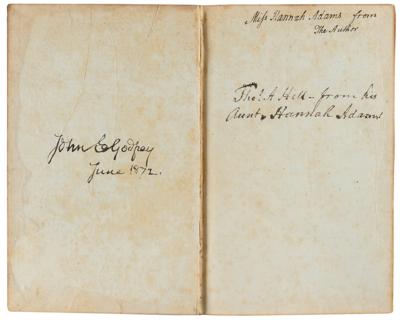 John E Godfrey
June 1872.
Miss Hannah Adams from
The Author
Tho.s A Hill - from his
Aunt, Hannah Adams